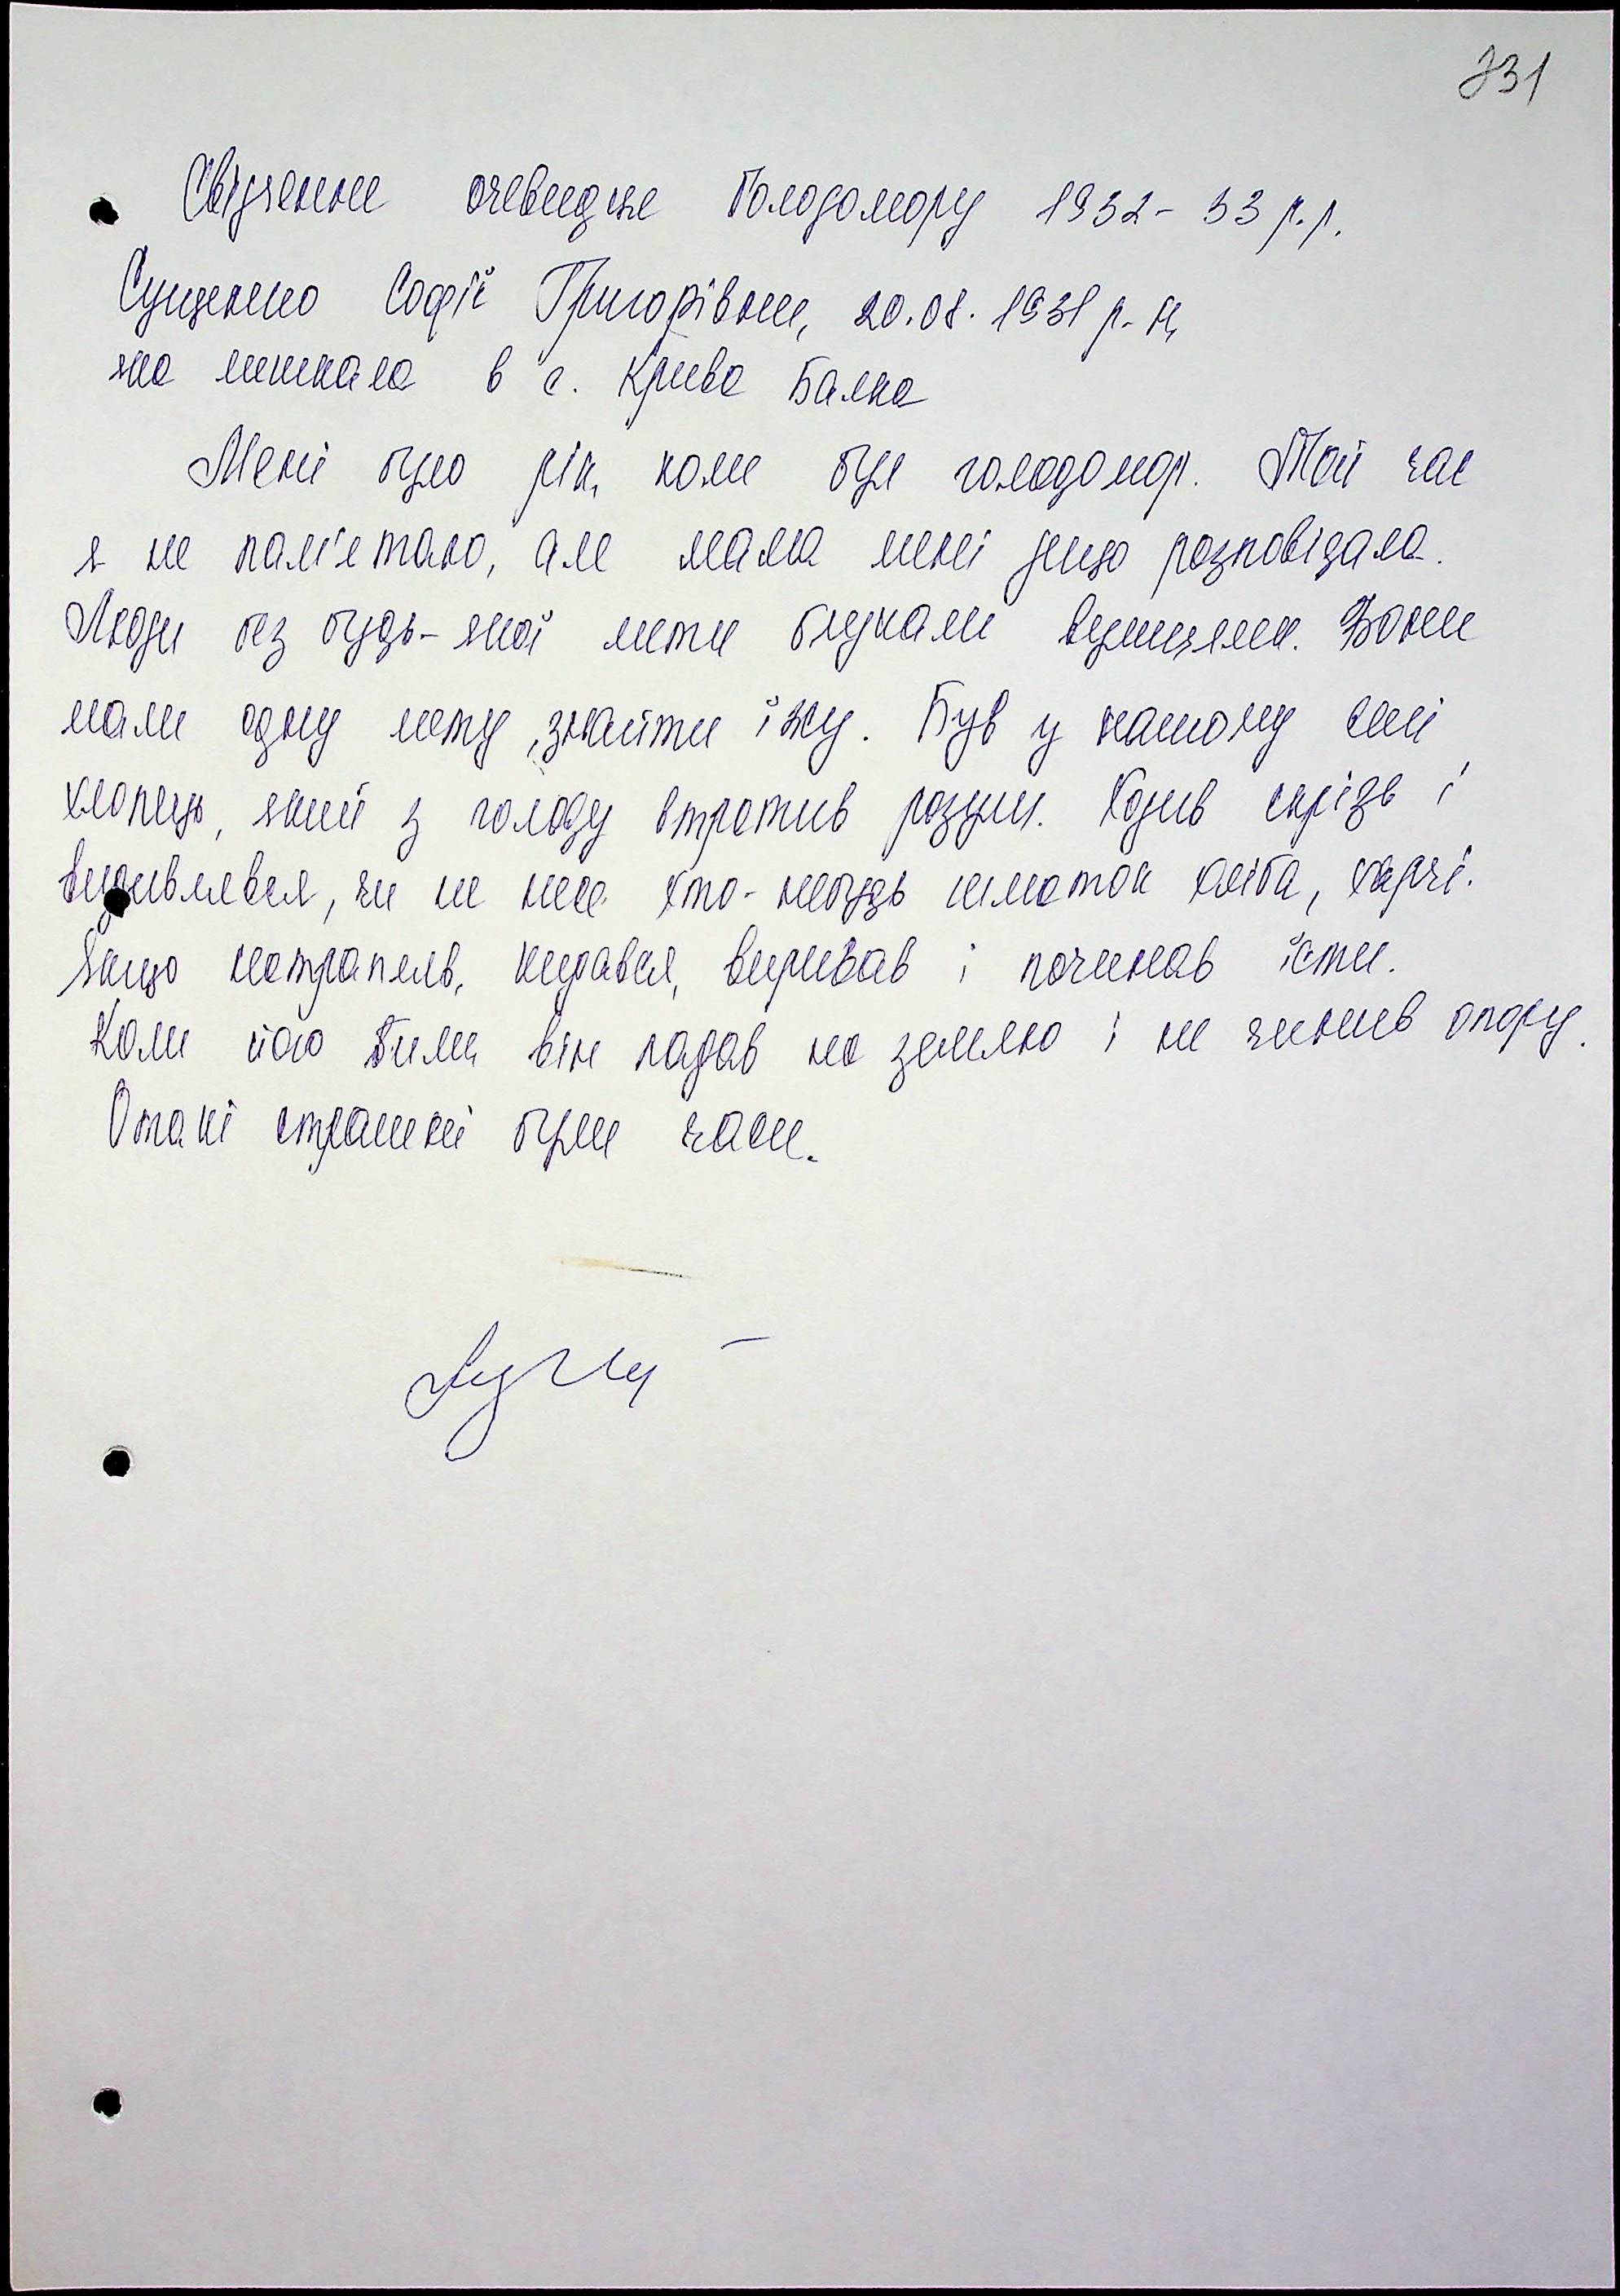 331
Свідчення очевидця Голодомору 1932-33 р.р.
Сущенко Софії Григорівни, 20.08.1931 р. н,
яка мешкала в с. Крива Балка
Мені було рік, коли був голодомор. Той час
я не пам'ятаю, але мама мені дещо розповідала.
Люди без будь-якої мети блукали вулицями. Вони
мали одну мету, знайти їжу. Був у нашому селі
хлопець, який з голоду втратив розум. Ходив скрізь і
видивлявся, чи не несе хто-небудь шматок хліба, харчі.
Якщо натрапляв, кидався, виривав і починав їсти.
Коли його били, він падав на землю і не чинив опору.
Отакі страшні були часи.